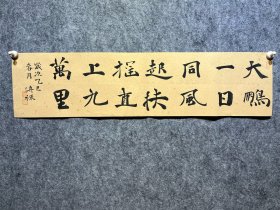 大鵬
一日
同風
起扶
摇直
上九
萬里
歲次乙巳